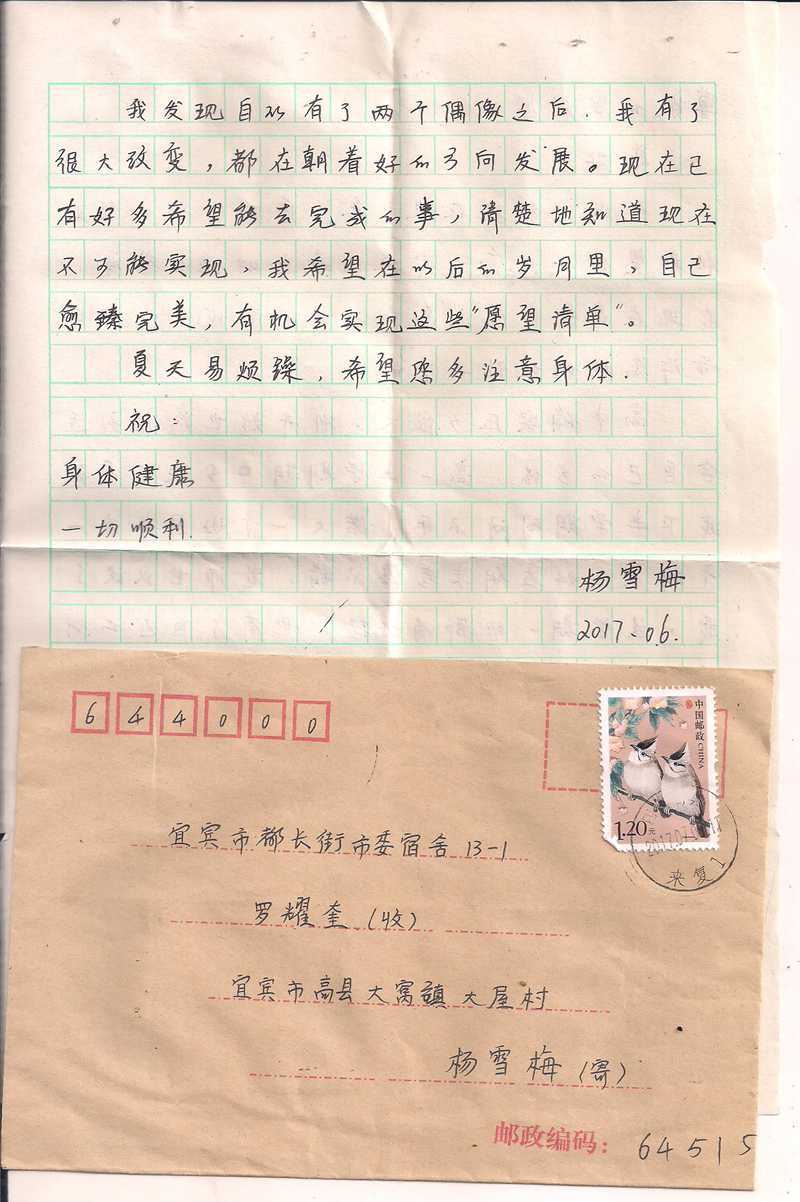 我发现自从有了两个偶像之后.我有了
很大改变，都在朝着好的方向发展。现在已
有好多希望能去完成的事，清楚地知道现在
不可能实现，我希望在以后的岁月里，自己
愈臻完美，有机会实现这些“愿望清单”。
夏天易烦躁，希望您多注意身体.
祝：
身体健康
一切顺利.
杨雪梅
2017.06.
644000
中国邮政 CHINA
1.20元
来复1
宜宾市都长街市委宿舍 13-1
罗耀奎（收）
宜宾市高县大窝镇大屋村
杨雪梅（寄）
邮政编码：64515